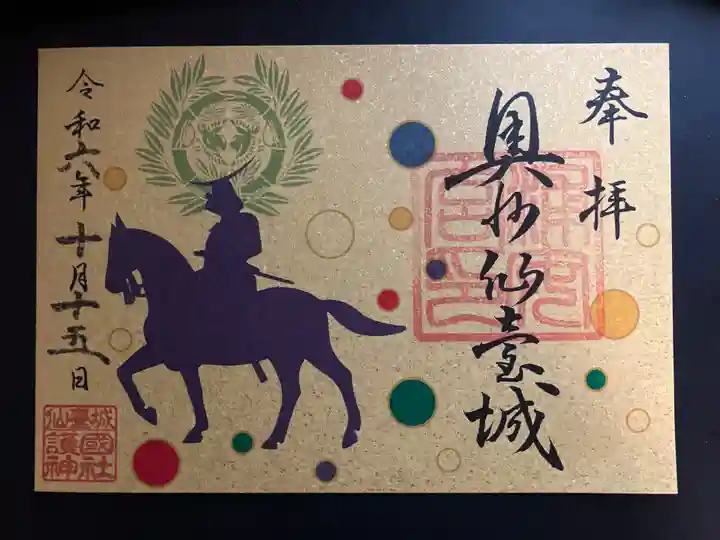 奉拝
奥州仙臺城
令和六年十月十五日
仙臺城
護國
神社